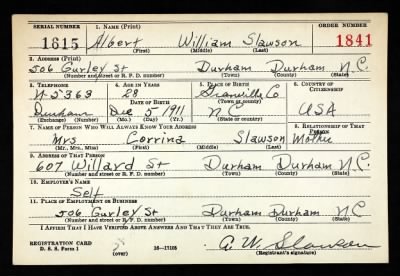 SERIAL NUMBER 1. NAME (Print) ORDER NUMBER
1615 Albert William Slawson 1841
(First) (Middle) (Last)
2. ADDRESS (Print)
506 Gurley St Durham Durham N.C.
(Number and street or R. F. D. number) (Town) (County) (State)
3. TELEPHONE 4. AGE IN YEARS 5. PLACE OF BIRTH 6. COUNTRY OF CITIZENSHIP
N-5363 28 Granville Co
DATE OF BIRTH (Town or county)
Durham Dec 5 1911 N C USA
(Exchange) (Number) (Mo.) (Day) (Yr.) (State or country)
7. NAME OF PERSON WHO WILL ALWAYS KNOW YOUR ADDRESS 8. RELATIONSHIP OF THAT PERSON
Mrs Corrina Slawson Mother
(Mr., Mrs., Miss) (First) (Middle) (Last)
9. ADDRESS OF THAT PERSON
607 Willard St Durham Durham N.C.
(Number and street or R. F. D. number) (Town) (County) (State)
10. EMPLOYER'S NAME
Self
11. PLACE OF EMPLOYMENT OR BUSINESS
506 Gurley St Durham Durham N.C.
(Number and street or R. F. D. number) (Town) (County) (State)
I AFFIRM THAT I HAVE VERIFIED ABOVE ANSWERS AND THAT THEY ARE TRUE.
REGISTRATION CARD
D. S. S. Form 1 (over) 16—17105 A. W. Slawson
(Registrant's signature)